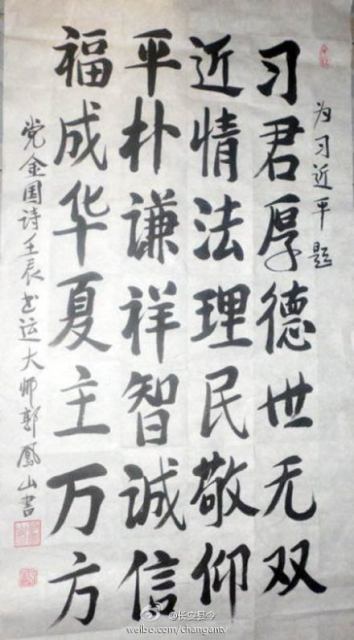 为习近平题
习君厚德世无双
近情法理民敬仰
平朴谦祥智诚信
福成华夏主万方
党金国诗壬辰书运大师郭凤山书
weibo.com/changantv